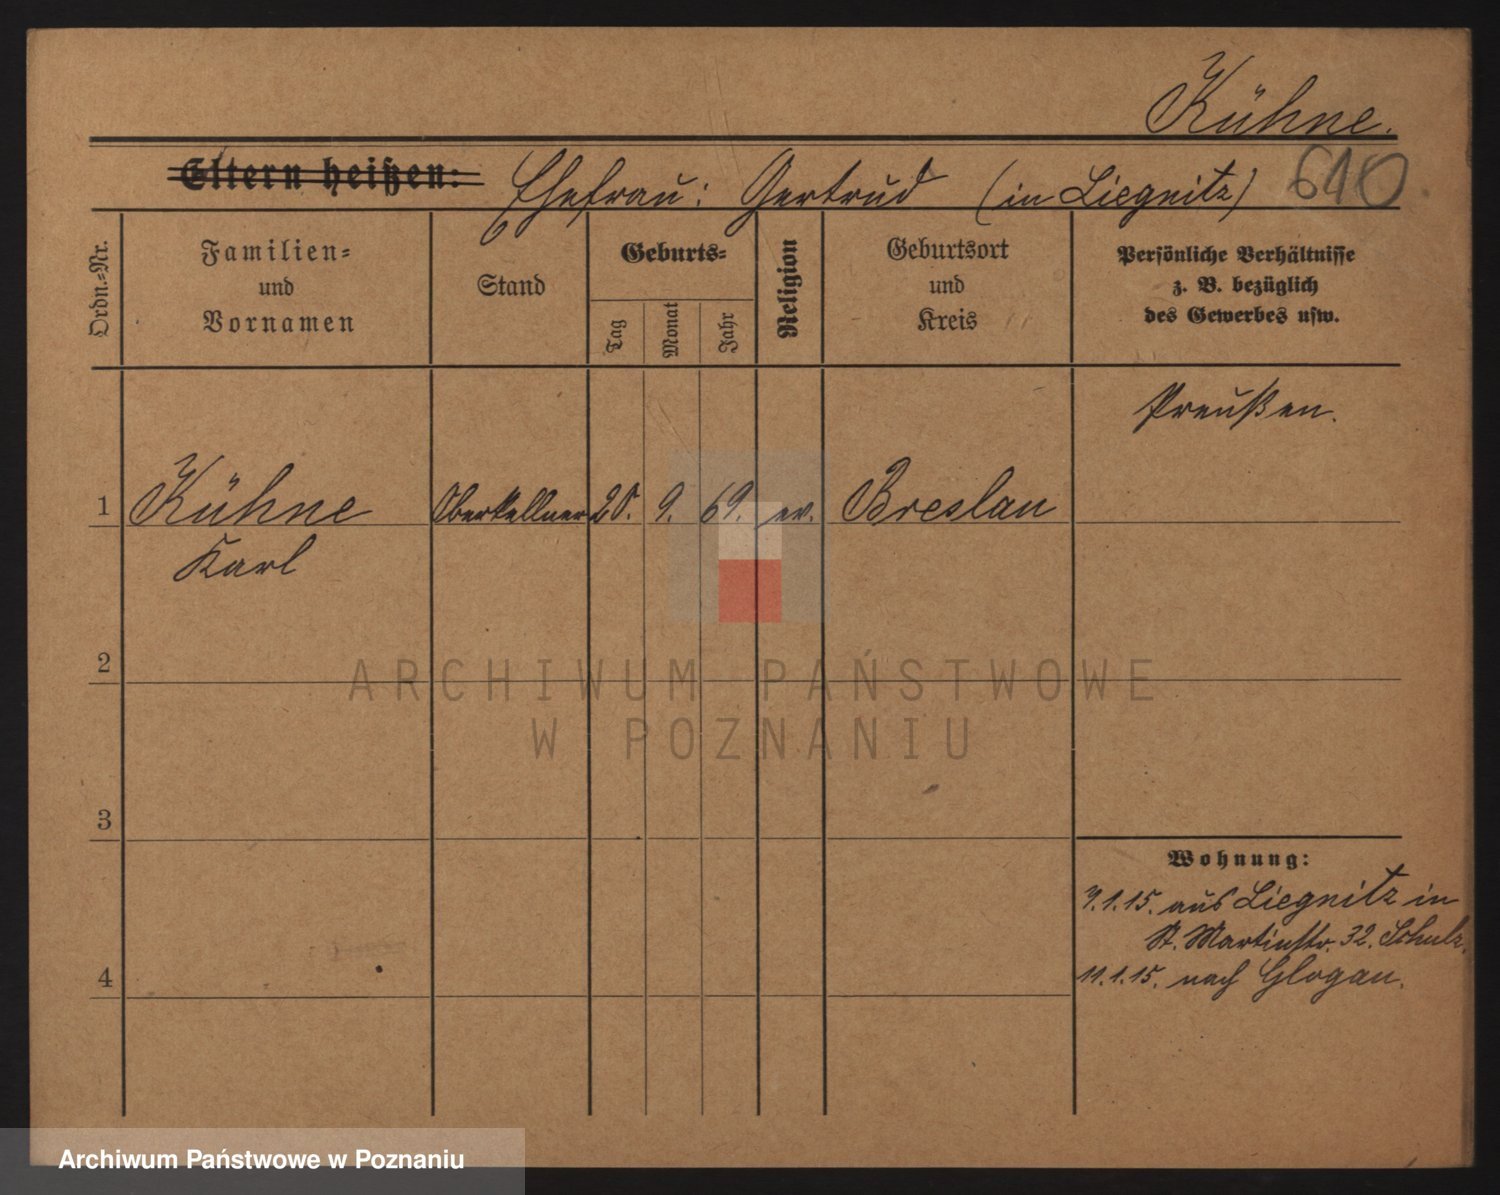 Kühne.
Eltern heißen: Ehefrau: Gertrud (in Liegnitz) 610
Ordn.-Nr.
Familien-
und
Vornamen
Stand
Geburts-
Tag
Monat
Jahr
Religion
Geburtsort
und
Kreis
Persönliche Verhältnisse
z. B. bezüglich
des Gewerbes usw.
Preußen.
1 Kühne Oberkellner 20. 9. 69. ev. Breslau
Karl
2
ARCHIWUM PAŃSTWOWE
W POZNANIU
3
Wohnung:
7.1.15. aus Liegnitz in
St. Martinstr. 32. Schulz.
4
11.1.15. nach Glogau.
Archiwum Państwowe w Poznaniu